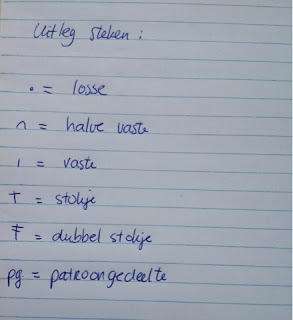 Uitleg steken :
• = losse
∩ = halve vaste
ı = vaste
T = stokje
Ŧ = dubbel stokje
pg = patroongedeelte